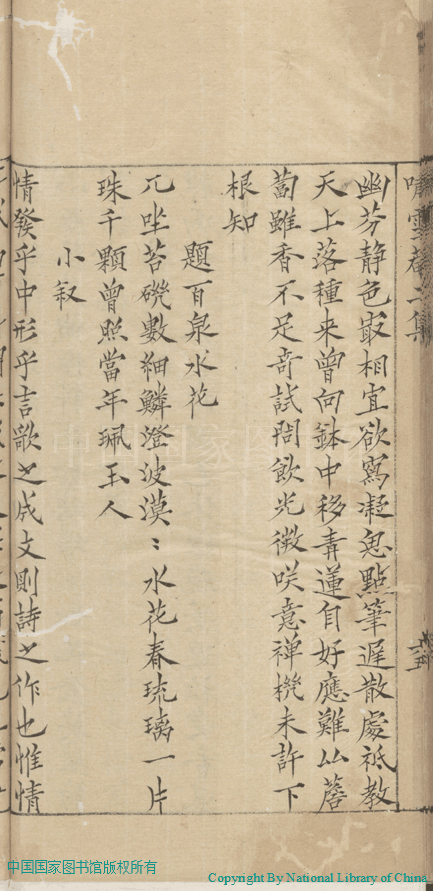 嘯雪菴二集
幽芬静色㝡相宜欲寫凝思點筆遲散處祗教
天上落種来曾向鉢中移青蓮自好應難比薝
蔔雖香不足奇試問飲光微咲意禅機未許下
根知
題百泉水花
兀坐苔磯數細鱗澄波漠〻水花春琉璃一片
珠千顆曾照當年珮玉人
小叙
情發乎中形乎言歌之成文則詩之作也惟情
中国国家图书馆版权所有
Copyright By National Library of China